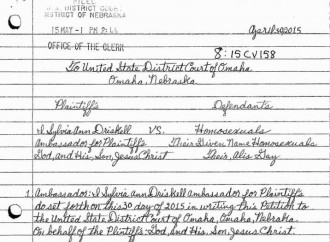 FILED
U.S. DISTRICT CLERK
DISTRICT OF NEBRASKA
15 MAY -1 PM 2:
OFFICE OF THE CLERK
April 30, 2015
8:15CV158
To United State District Court of Omaha
Omaha, Nebraska
Plaintiffs Defendants
I Sylvia Ann Driskell VS. Homosexuals
Ambassador for Plaintiffs Their Given Name Homosexuals
God, And His, Son, Jesus Christ Their, Alis Gay
1 Ambassador: I Sylvia Ann Driskell Ambassador for Plaintiffs
do set forth on this 30 day of 2015 in writing this Petition to
the United State District Court of Omaha, Omaha, Nebraska.
On behalf of the Plintiffs God, And His, Son, Jesus Christ.